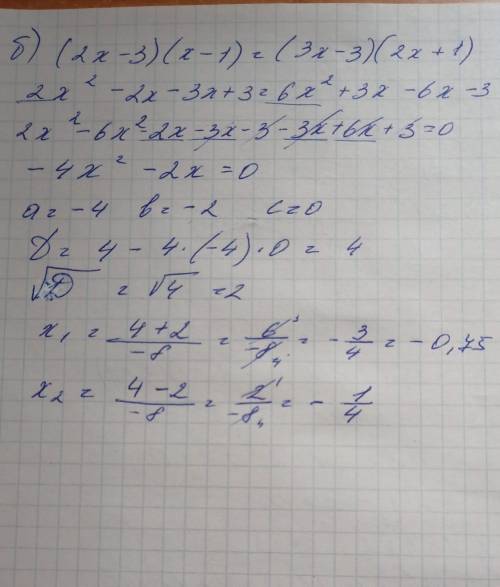 б) (2x-3)(x-1)=(3x-3)(2x+1)
2x² -2x-3x+3=6x²+3x-6x-3
2x²-6x²-2x-3x-3-3x+6x+3=0
-4x² -2x=0
a=-4 b=-2 c=0
D= 4-4·(-4)·0= 4
√D = √4 =2
x₁ = 4+2/-8 = 6³/-8₄ = -3/4 = -0,75
x₂ = 4-2/-8 = 2¹/-8₄ = -1/4